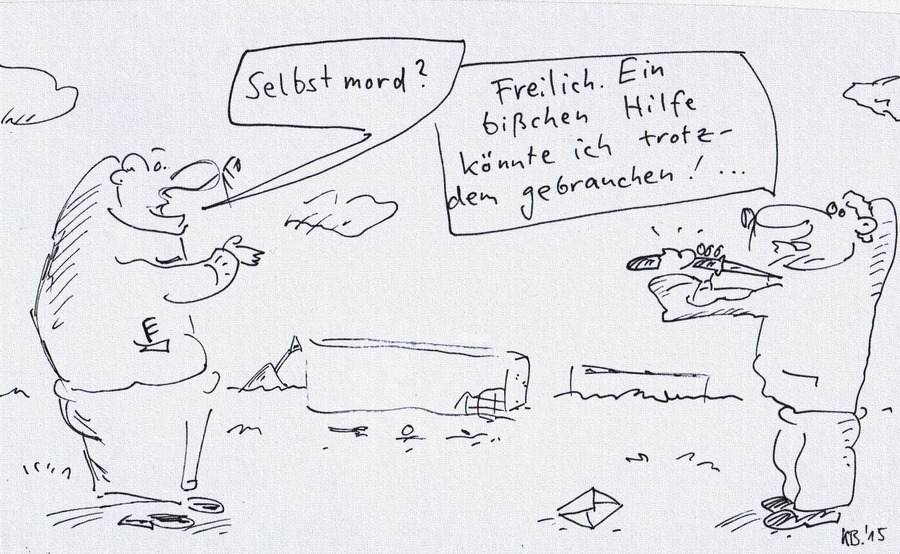 Selbstmord?
Freilich. Ein
bißchen Hilfe
könnte ich trotz-
dem gebrauchen! ...
E
KB.'15